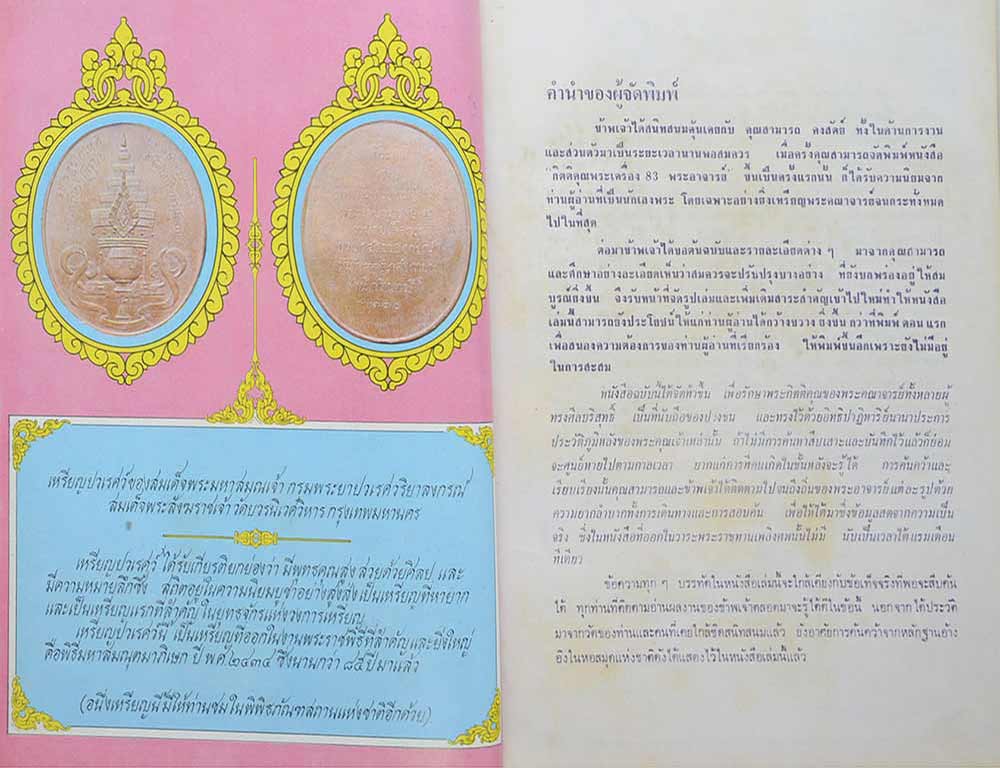 เหรียญปวเรศว์ของสมเด็จพระมหาสมณเจ้า กรมพระยาปวเรศวริยาลงกรณ์
สมเด็จพระสังฆราชเจ้า วัดบวรนิเวศวิหาร กรุงเทพมหานคร
เหรียญปวเรศว์ ได้รับเกียรติยกย่องว่า มีพุทธคุณสูง สวยด้วยศิลป และ
มีความหมายลึกซึ้ง สถิตอยู่ในความนิยมบูชาอย่างสูงส่ง เป็นเหรียญที่หายาก
และเป็นเหรียญแรกที่ล้ำคู่ ในยุทธจักรแห่งวงการเหรียญ
เหรียญปวเรศว์นี้ เป็นเหรียญที่ออกในงานพระราชพิธีที่สำคัญและยิ่งใหญ่
คือพิธีมหาสมณุตมาภิเษก ปี พ.ศ.๒๔๓๔ ซึ่งนานกว่า ๘๕ ปี มาแล้ว
(อนึ่งเหรียญนี้มีให้ท่านชมในพิพิธภัณฑสถานแห่งชาติอีกด้วย)
คำนำของผู้จัดพิมพ์
ข้าพเจ้าได้สนิทสนมคุ้นเคยกับ คุณสามารถ คงสัตย์ ทั้งในด้านการงาน
และส่วนตัวมาเป็นระยะเวลานานพอสมควร เมื่อครั้งคุณสามารถจัดพิมพ์หนังสือ
"กิตติคุณพระเครื่อง 83 พระอาจารย์" ขึ้นเป็นครั้งแรกนั้น ก็ได้รับความนิยมจาก
ท่านผู้อ่านที่เป็นนักเลงพระ โดยเฉพาะอย่างยิ่งเหรียญพระคณาจารย์จนกระทั่งหมด
ไปในที่สุด
ต่อมาข้าพเจ้าได้ขอต้นฉบับและรายละเอียดต่าง ๆ มาจากคุณสามารถ
และศึกษาอย่างละเอียดเห็นว่าสมควรจะปรับปรุงบางอย่าง ที่ยังบกพร่องอยู่ให้สม
บูรณ์ยิ่งขึ้น จึงรับหน้าที่จัดรูปเล่มและเพิ่มเติมสาระสำคัญเข้าไปใหม่ทำให้หนังสือ
เล่มนี้สามารถยังประโยชน์ให้แก่ท่านผู้อ่านได้กว้างขวาง ยิ่งขึ้น กว่าที่พิมพ์ ตอน แรก
เพื่อสนองความต้องการของท่านผู้อ่านที่เรียกร้อง ให้พิมพ์ขึ้นอีกเพราะยังไม่มีอยู่
ในการสะสม
หนังสือฉบับนี้ได้จัดทำขึ้น เพื่อรักษาพระกิตติคุณของพระคณาจารย์ทั้งหลายผู้
ทรงศีลบริสุทธิ์ เป็นที่นับถือของปวงชน และทรงไว้ด้วยอิทธิปาฏิหาริย์นานาประการ
ประวัติภูมิหลังของพระคุณเจ้าเหล่านั้น ถ้าไม่มีการค้นหาสืบเสาะและบันทึกไว้แล้วก็ย่อม
จะสูญหายไปตามกาลเวลา ยากแก่การที่คนเกิดในชั้นหลังจะรู้ได้ การค้นคว้าและ
เรียบเรียงนั้นคุณสามารถและข้าพเจ้าได้ติดตามไปจนถึงถิ่นของพระอาจารย์แต่ละรูปด้วย
ความยากลำบากทั้งการเดินทางและการสอบค้น เพื่อให้ได้มาซึ่งข้อมูลสดจากความเป็น
จริง ซึ่งในหนังสือที่ออกในวาระพระราชทานเพลิงศพนั้นไม่มี นับเป็นเวลาได้แรมเดือน
ทีเดียว
ข้อความทุก ๆ บรรทัดในหนังสือเล่มนี้จะใกล้เคียงกับข้อเท็จจริงที่พอจะสืบค้น
ได้ ทุกท่านที่ติดตามอ่านผลงานของข้าพเจ้าตลอดมาจะรู้ได้ดีในข้อนี้ นอกจากได้ประวัติ
มาจากวัดของท่านและคนที่เคยใกล้ชิดสนิทสนมแล้ว ยังอาศัยการค้นคว้าจากหลักฐานอ้าง
อิงในหอสมุดแห่งชาติดังได้แสดงไว้ในหนังสือเล่มนี้แล้ว